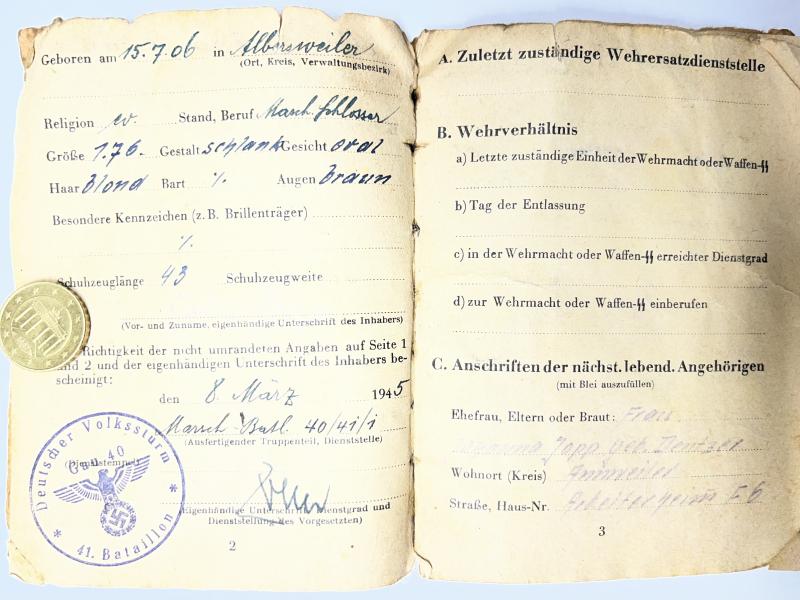 Geboren am 15.7.06 in Albersweiler
(Ort, Kreis, Verwaltungsbezirk)
Religion ev. Stand, Beruf Masch. Schlosser
Größe 1.76. Gestalt schlank Gesicht oval
Haar blond Bart ./. Augen braun
Besondere Kennzeichen (z. B. Brillenträger)
./.
Schuhzeuglänge 43 Schuhzeugweite
(Vor- und Zuname, eigenhändige Unterschrift des Inhabers)
Richtigkeit der nicht umrandeten Angaben auf Seite 1
und 2 und der eigenhändigen Unterschrift des Inhabers be-
scheinigt:
den 8. März 1945
Marsch-Batl. 40/41/1
(Ausfertigender Truppenteil, Dienststelle)
(Dienststempel)
Deutscher Volkssturm
Gau 40
41. Bataillon
(Eigenhändige Unterschrift, Dienstgrad und
Dienststellung des Vorgesetzten)
2
A. Zuletzt zuständige Wehrersatzdienststelle
B. Wehrverhältnis
a) Letzte zuständige Einheit der Wehrmacht oder Waffen-SS
b) Tag der Entlassung
c) in der Wehrmacht oder Waffen-SS erreichter Dienstgrad
d) zur Wehrmacht oder Waffen-SS einberufen
C. Anschriften der nächst. lebend. Angehörigen
(mit Blei auszufüllen)
Ehefrau, Eltern oder Braut: Frau
Japp geb. Dentzer
Wohnort (Kreis) Annweiler
Straße, Haus-Nr. Arbeiterheim F6
3